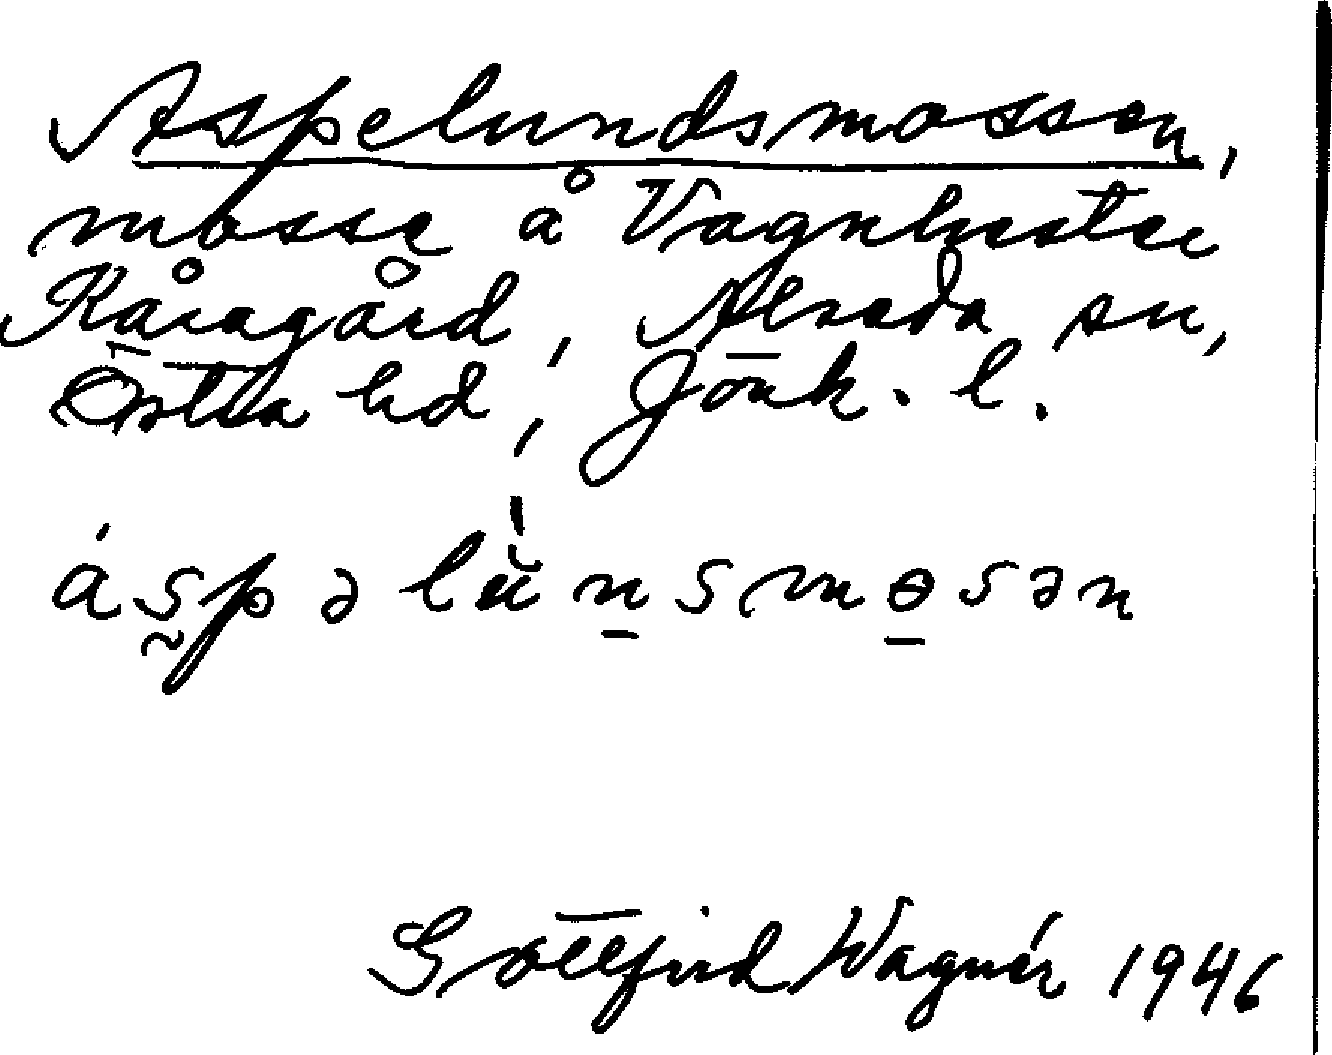 Aspelundsmossen,
mosse å Vagnhester
Råragård, Alseda sn,
Östra hd, Jönk. l.
áspəlŭnsmɵsən
Gottfrid Wagnér 1946